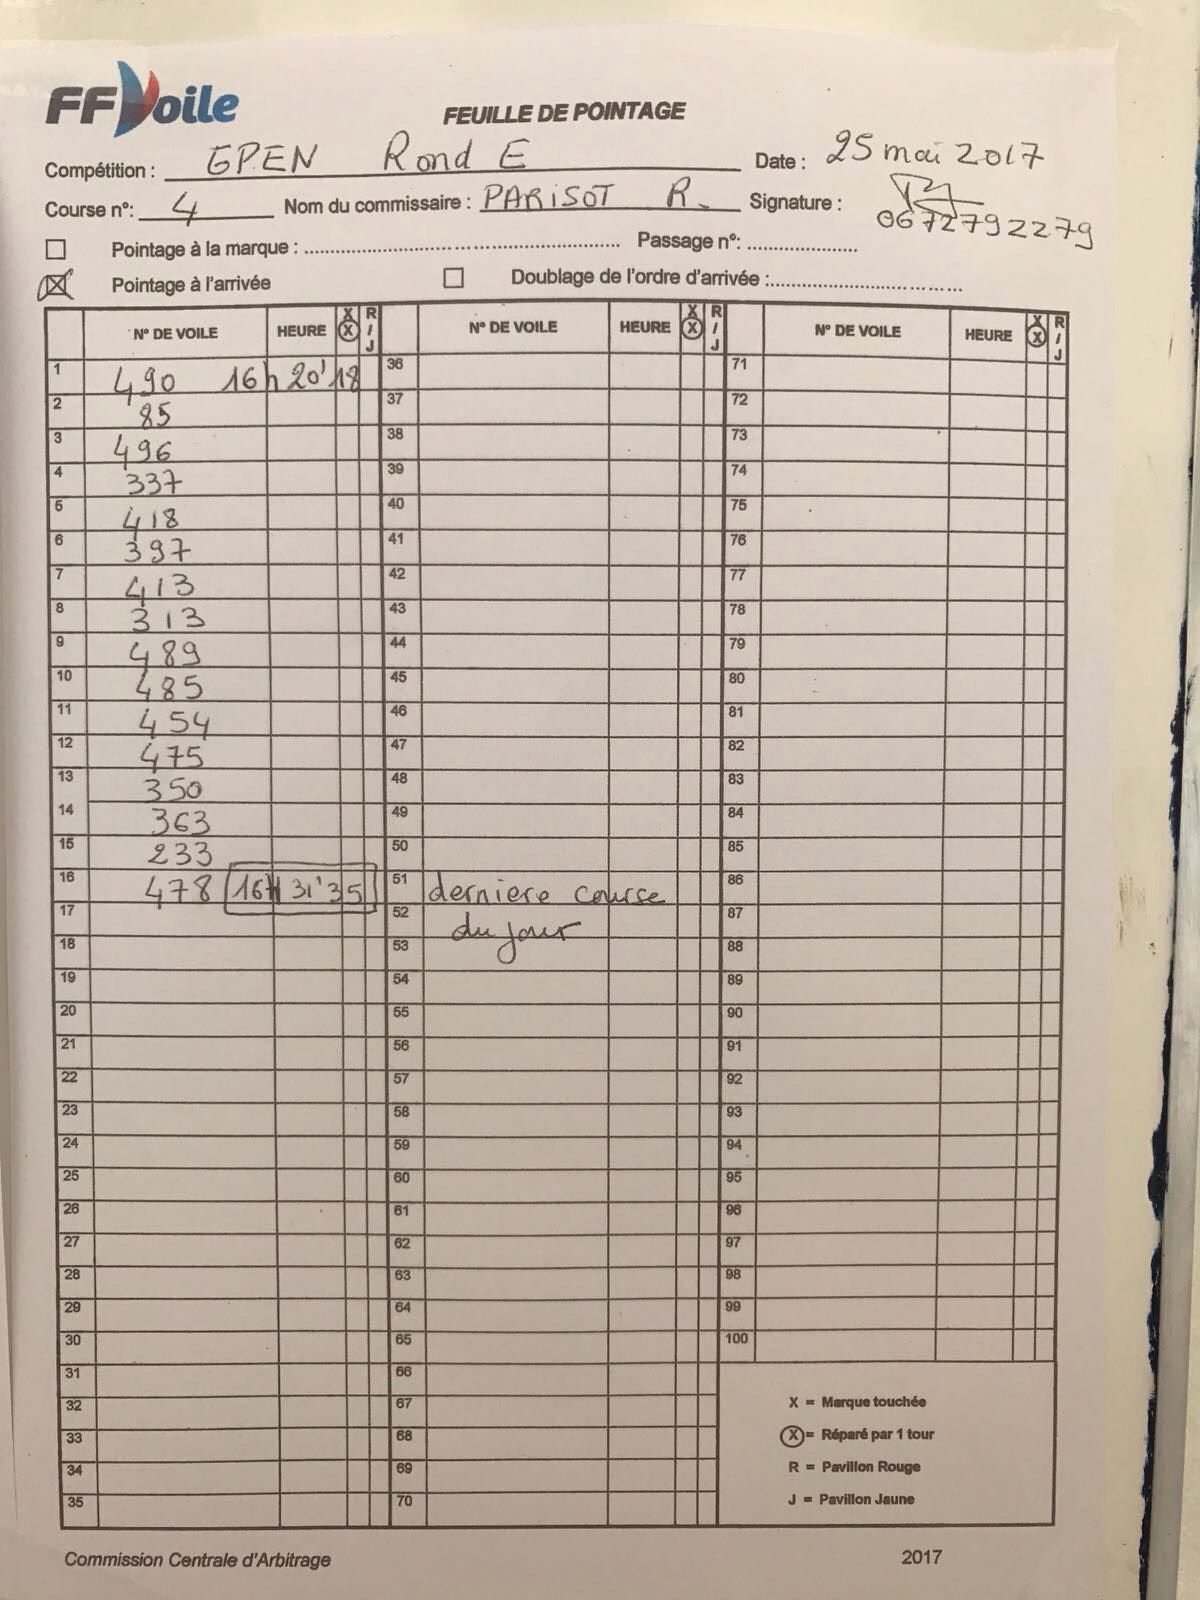 FFVoile
FEUILLE DE POINTAGE
Compétition : GPEN Rond E Date : 25 mai 2017
Course n°: 4 Nom du commissaire : PARISOT R. Signature :
0672792279
Pointage à la marque : Passage n°:
Pointage à l'arrivée Doublage de l'ordre d'arrivée :
N° DE VOILE HEURE X Ⓧ R / J N° DE VOILE HEURE X Ⓧ R / J N° DE VOILE HEURE X Ⓧ R / J
1 490 16h 20'18 36 71
2 85 37 72
3 496 38 73
4 337 39 74
5 418 40 75
6 397 41 76
7 413 42 77
8 313 43 78
9 489 44 79
10 485 45 80
11 454 46 81
12 475 47 82
13 350 48 83
14 363 49 84
15 233 50 85
16 478 16H 31'35 51 derniere course 86
17 52 du jour 87
18 53 88
19 54 89
20 55 90
21 56 91
22 57 92
23 58 93
24 59 94
25 60 95
26 61 96
27 62 97
28 63 98
29 64 99
30 65 100
31 66
32 67 X = Marque touchée
33 68 Ⓧ= Réparé par 1 tour
34 69 R = Pavillon Rouge
35 70 J = Pavillon Jaune
Commission Centrale d'Arbitrage 2017